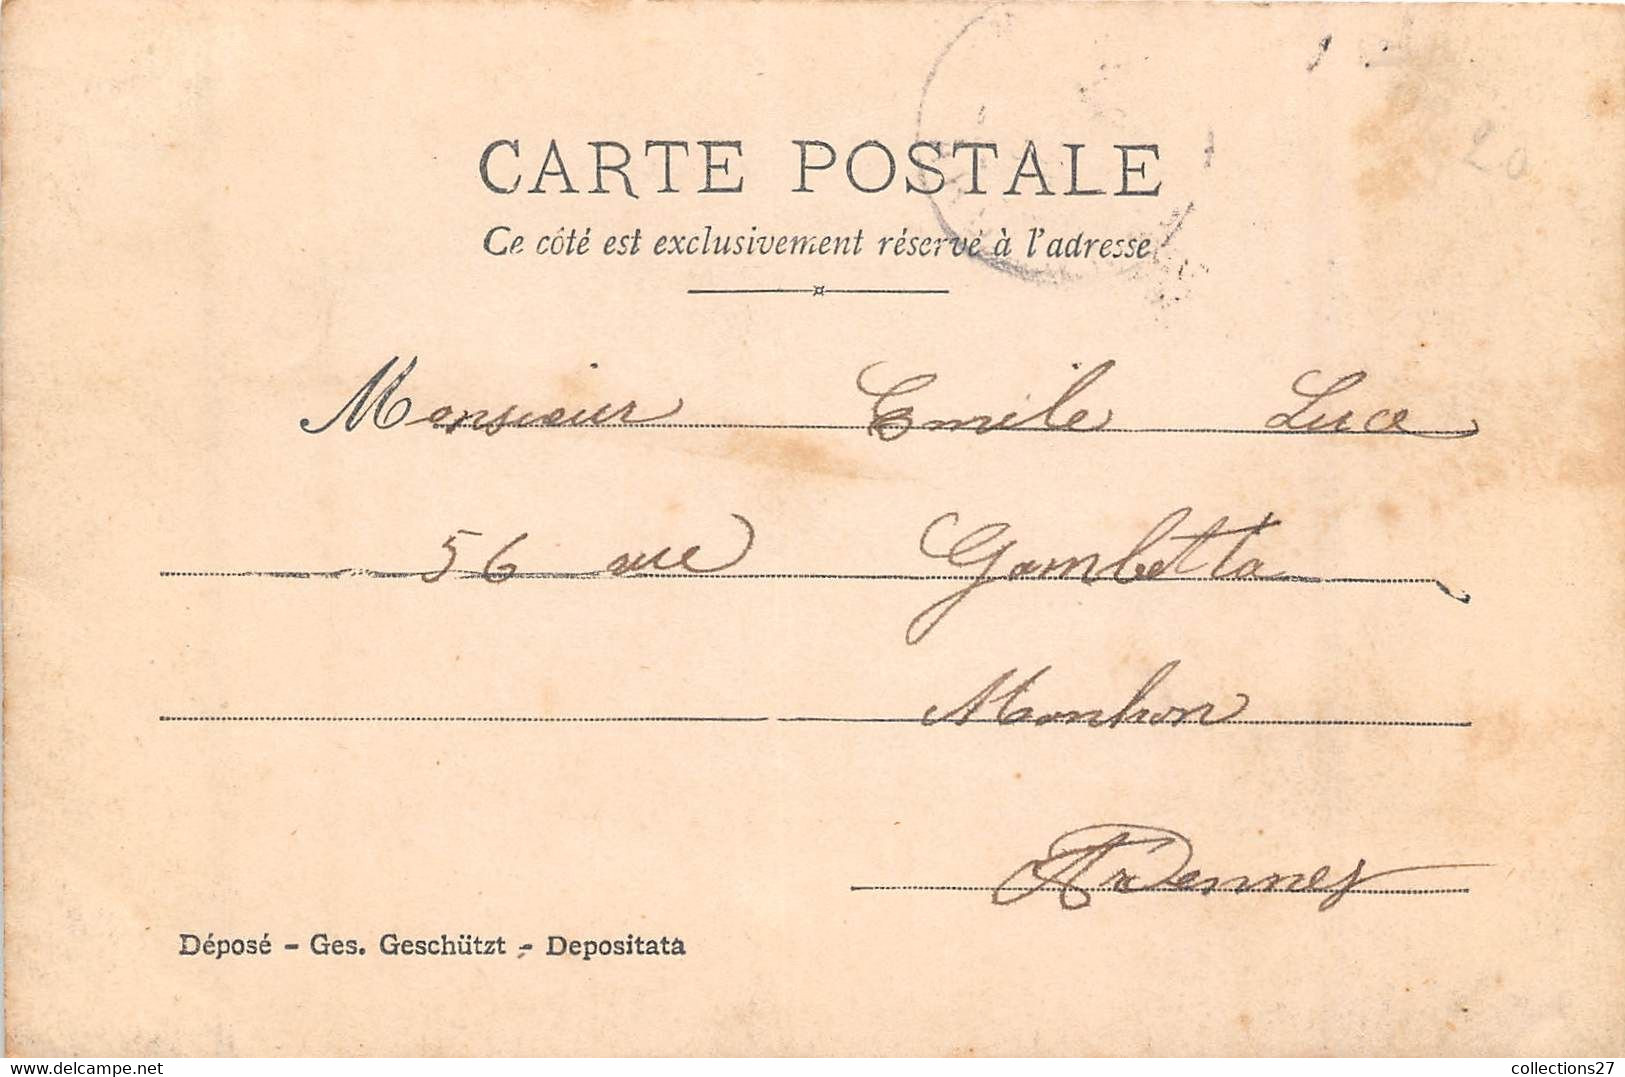 20
CARTE POSTALE
Ce côté est exclusivement réservé à l'adresse
Monsieur Emile Luce
56 rue Gambetta
Monhon
Ardennes
Déposé - Ges. Geschützt - Depositata
collections27